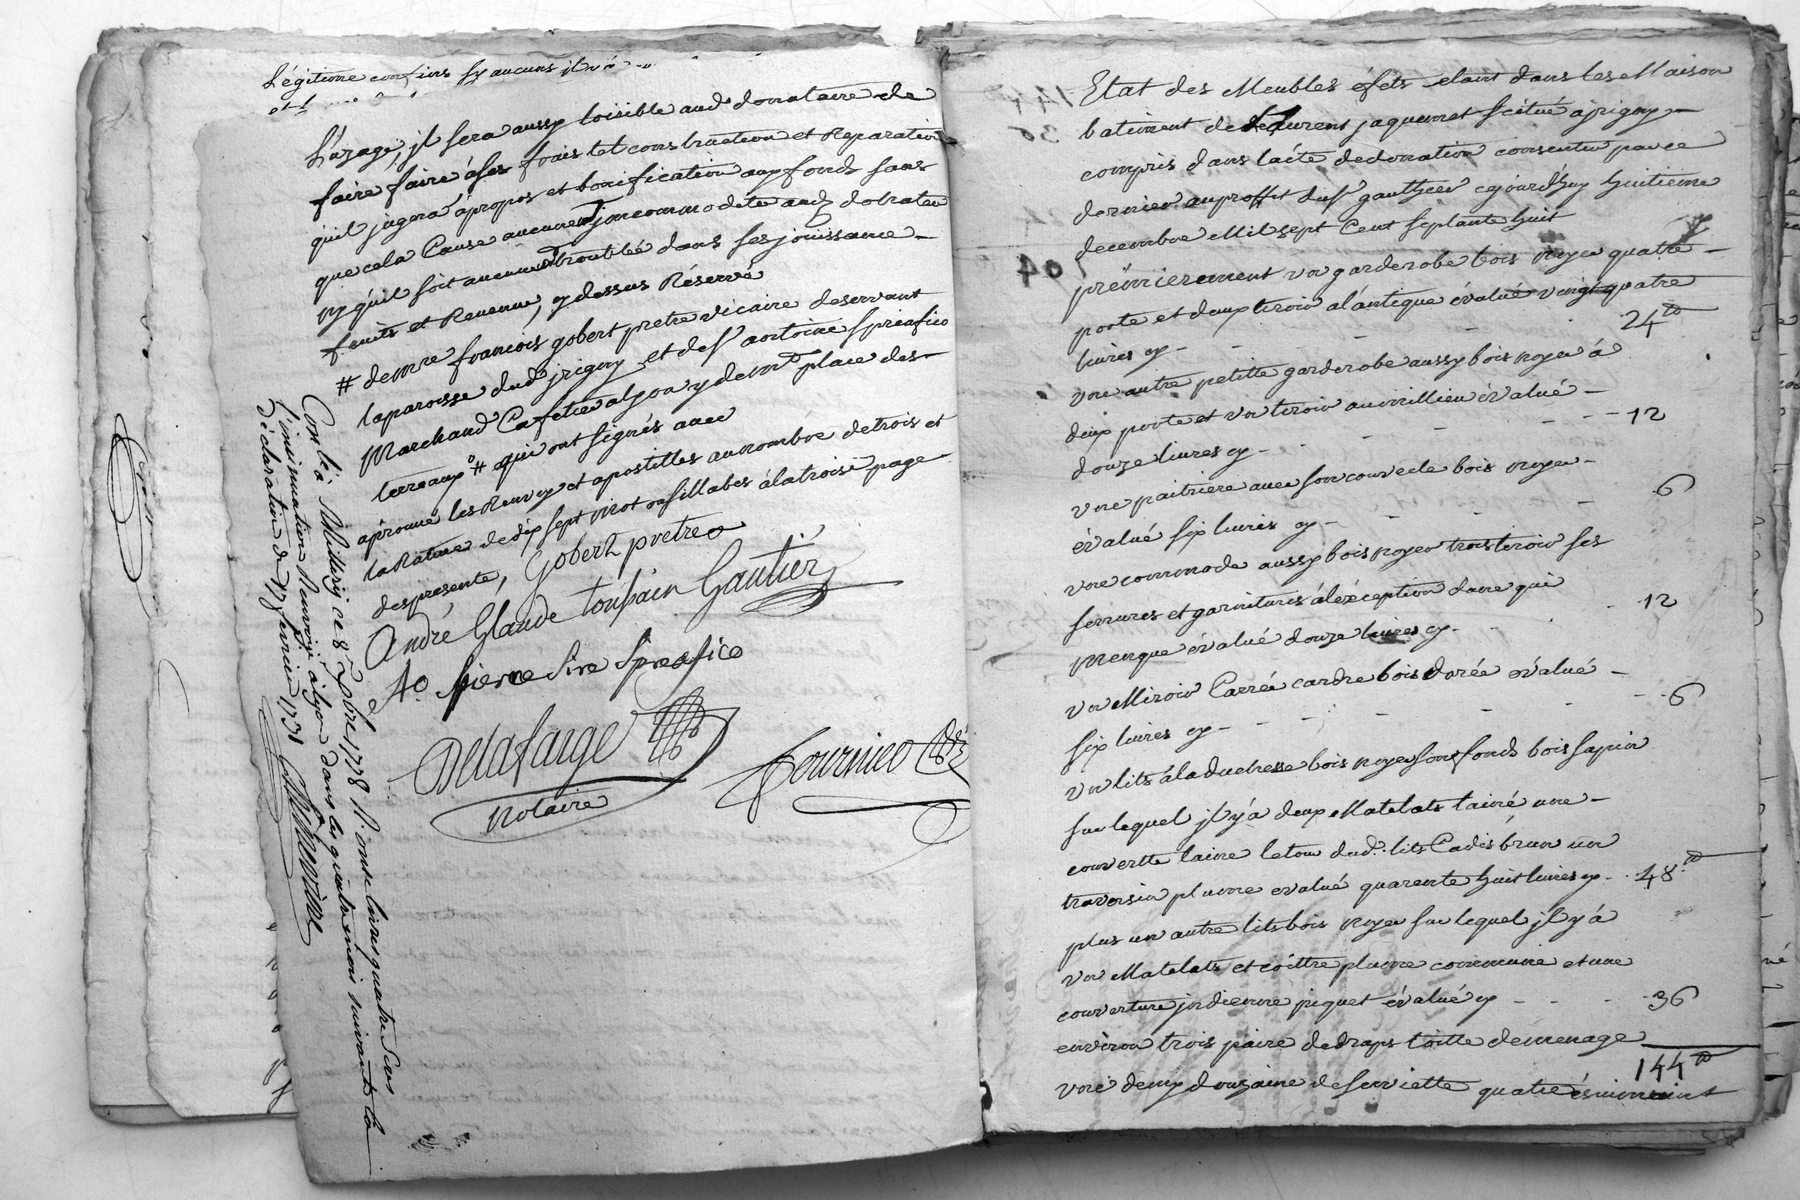 Légitime confins sy aucuns jl
L'uzage, jl sera aussy loisible aud donataire de
faire faire à ses frais tel construction et Reparation
quil jugera àpropos et bonification aux fonds sans
que cela Cause aucune jncommodité aud donateur
ny quil soit aucune troublé dans ses jouissance
fruits et Revenu, cy dessus Réservé
# demre françois gobert pretre vicaire deservant
laparoisse dud jrigny et de sr antoine Spreafico
Marchand Cafetier alyon y demt place des
terreaux # qui ont signés avec
aprouvé les Renvoy et apostilles aunombre detrois et
laRature de dix sept mot ou sillabes àlatroisie page
desprésente,
Gobert pretre
André Glaude toussain Gautier
Ao pierre Spreafico
Delafarge
notaire
fournier
Conlé à Millery ce 8 Xbre 1778 R. onze livres quatre sous
l'insinuation Renvoyé àlyon dans les quatre mois suivants la
Déclaration du 17 fevrier 1731
Etat des Meubles éfets etant dans les Maison
batiment de Laurent jaquemet scitué àjrigny
compris dans l'acte dedonation consentie parce
dernier auproffit du sr gauthier cejourd'huy huitieme
decembre Mil sept Cent septante huit
prémierement un garderobe bois noyer quatre
porte et deux tiroir al'antique évalué vingt quatre
livres cy - 24 tt
une autre petitte garderobe aussy bois noyer à
deux porte et un tiroir aumillieu évalué
douze livres cy - 12
une paitriere avec son couvecle bois noyer
évalué six livres cy - 6
une commode aussy bois noyer trois tiroir ses
serrures et garnitures àl'éxception dune qui
menque évalué douze livres cy - 12
un Miroir Carré cardre bois dorée évalué
six livres cy - 6
un lits àla duchesse bois noyer son fonds bois sapin
sur lequel jl y'a deux Matelats lainé une
couvertte laine letour dud. lits Cadis brun un
traversin plume evalué quarente huit livres cy - 48 tt
plus un autre lits bois noyer sur lequel jl y'à
un Matelats et coittre plume commune et une
couverture jndienne piquet évalué cy - 36
environ trois paire dedraps toille demenage
144 tt
une demy douzaine de serviette quatre